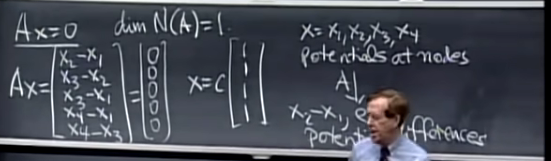 Ax=0 dim N(A)=1.
Ax= [x₂-x₁ x₃-x₂ x₃-x₁ x₄-x₁ x₄-x₃] = [0 0 0 0 0] x=c [1 1 1 1]
x=x₁,x₂,x₃,x₄
potentials at nodes
A↓
x₂-x₁, e
potential differences